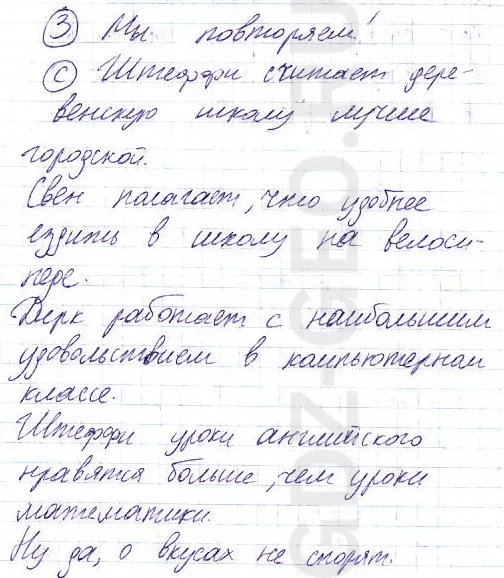 3 Мы повторяем!
c Штеффи считает дере-
венскую школу лучше
городской.
Свен полагает, что удобнее
ездить в школу на велоси-
педе.
Дирк работает с наибольшим
удовольствием в компьютерном
классе.
Штеффи уроки английского
нравятся больше, чем уроки
математики.
Ну да, о вкусах не спорят.
GDZ-GEO.RU